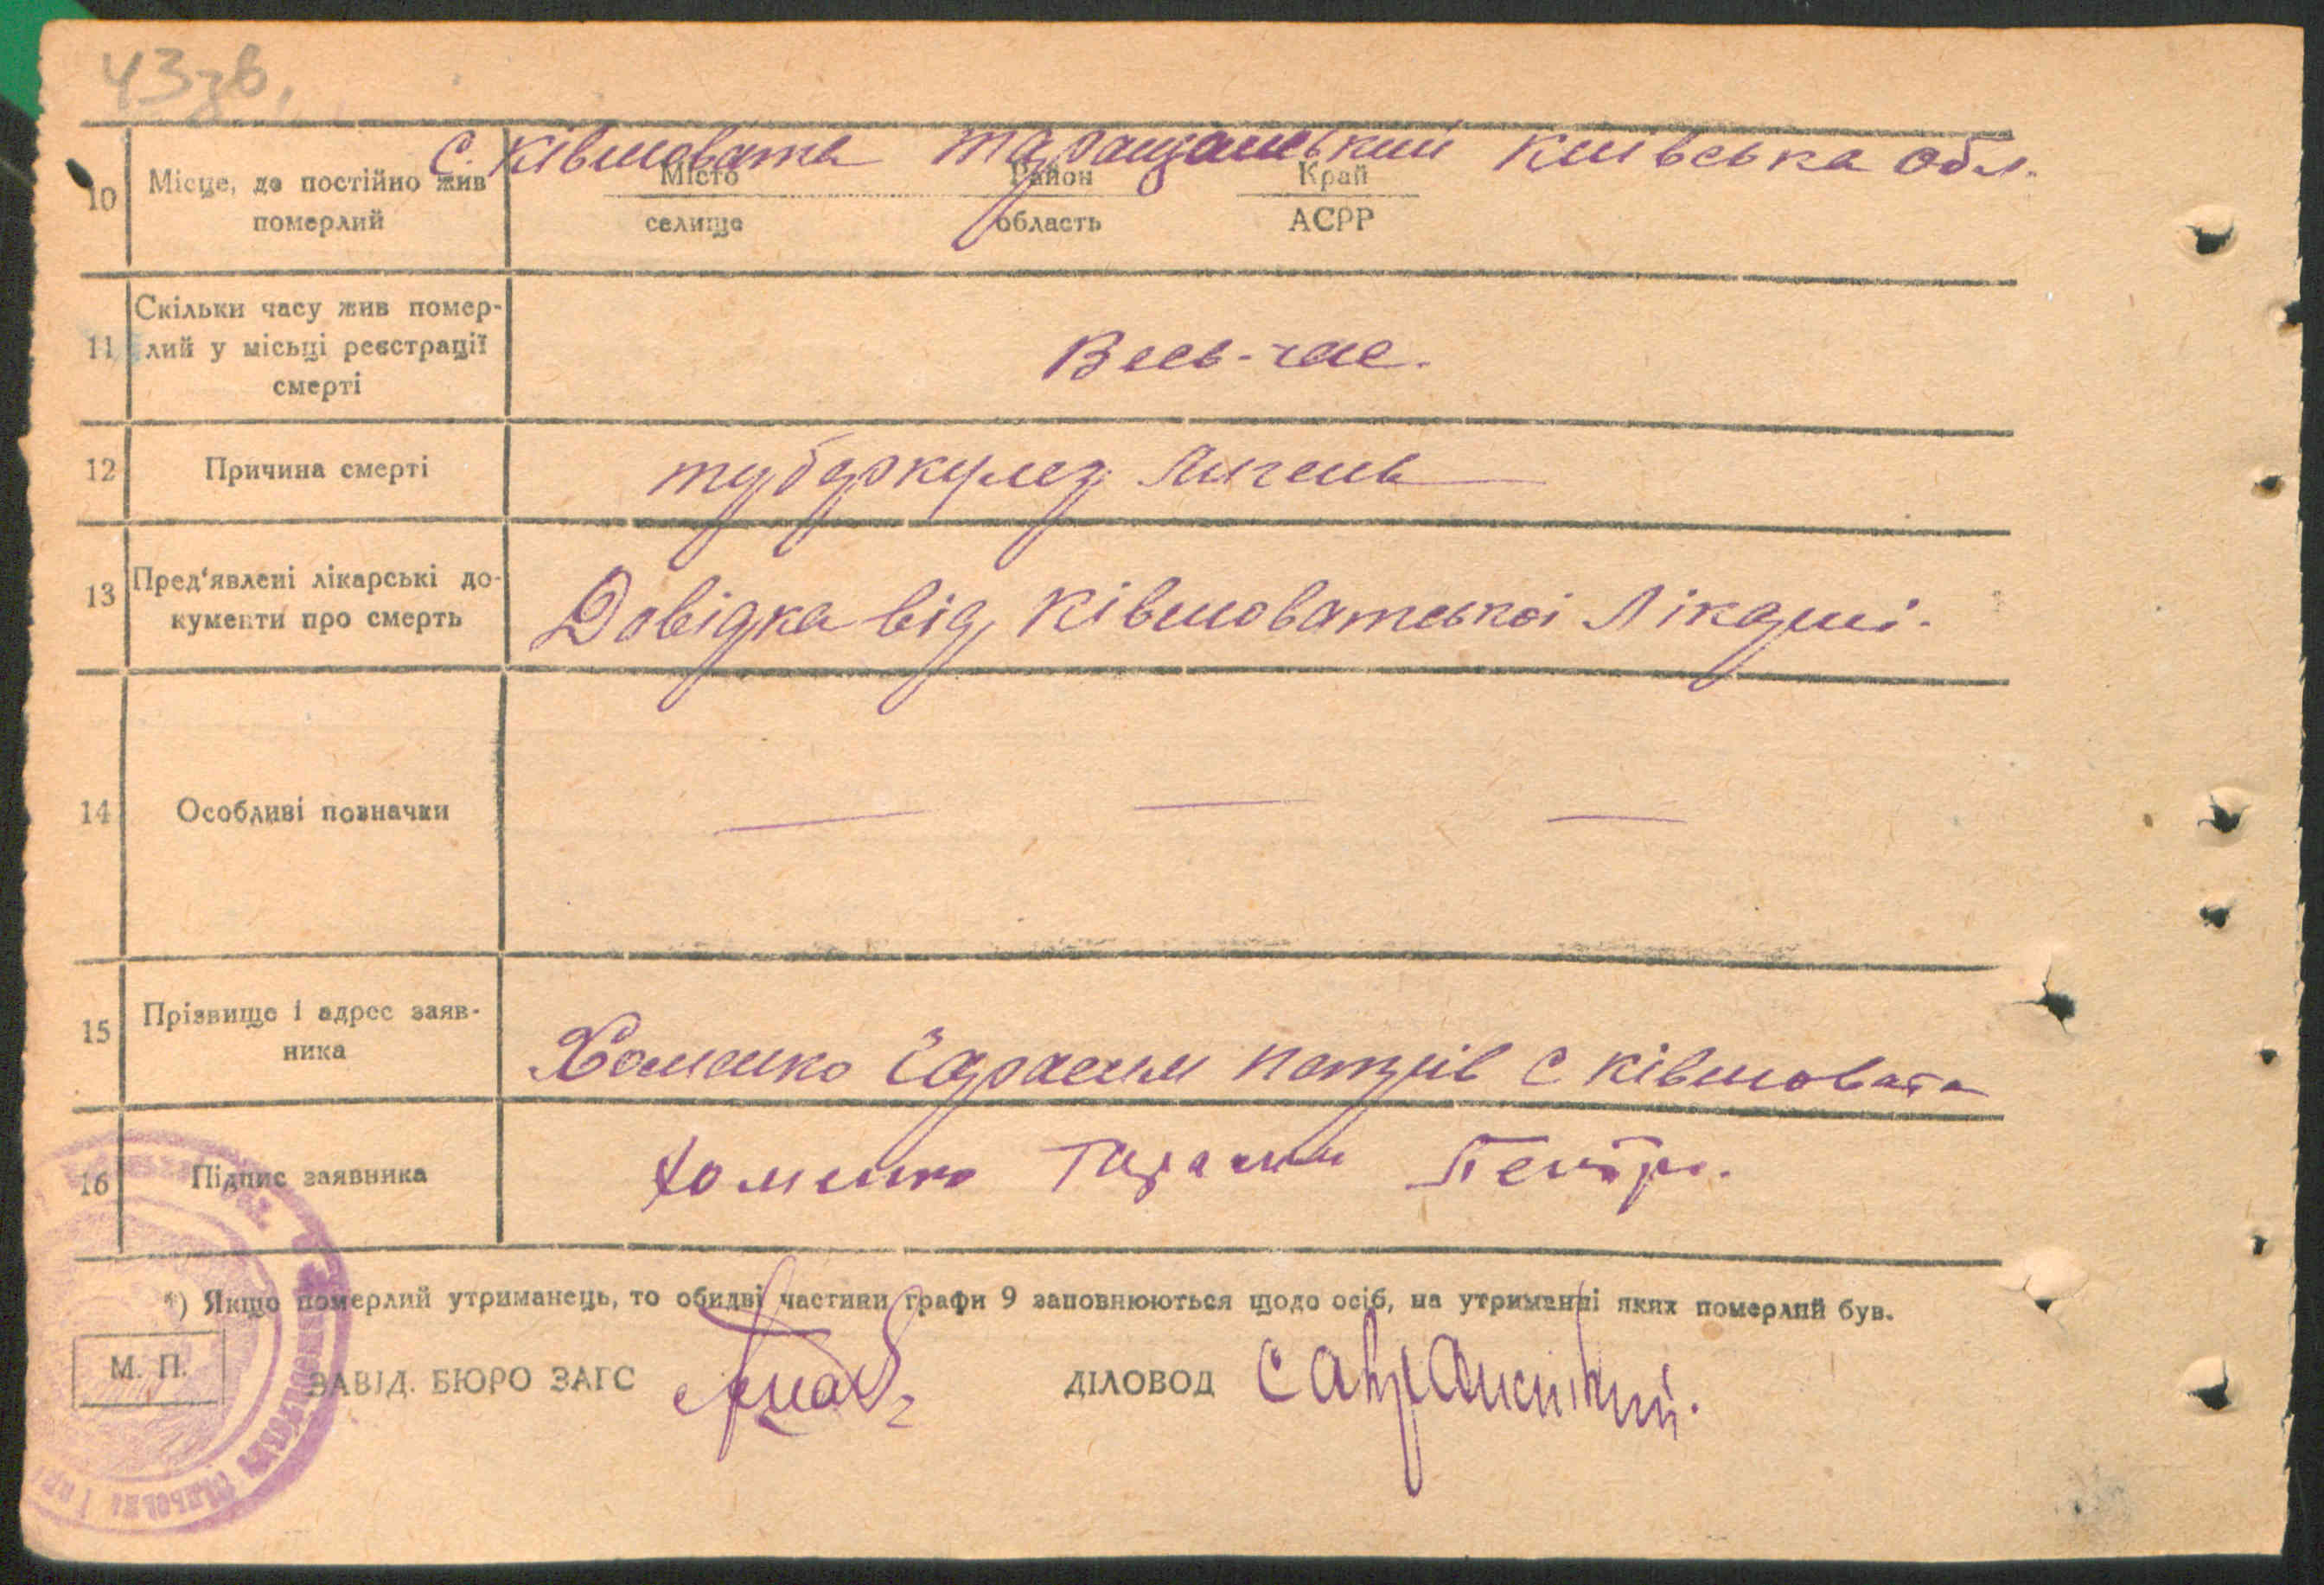 43зв.
с. Ківшовата Таращанський Київська обл.
10 Місце, де постійно жив померлий
Місто Район Край
селище область АСРР
11 Скільки часу жив помер-
лий у місьці реєстрації
смерті
Весь-час.
12 Причина смерті
туберкулез легень
13 Пред'явлені лікарські до-
кументи про смерть
Довідка від Ківшоватської Лікарні.
14 Особливі повначки
15 Прізвище і адрес заяв-
ника
Хоменко Гарасим Петрів с Ківшовата
16 Підпис заявника
Хоменко Гарасим Петро.
*) Якщо померлий утриманець, то обидві частини графи 9 заповнюються щодо осіб, на утриманні яких померлий був.
М. П.
ЗАВІД. БЮРО ЗАГС
ДІЛОВОД